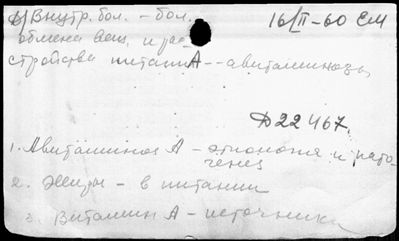 Внутр. бол. - бол. 16/II-60 ЕМ
обмена вещ. и рас
стройства питания - авитаминозы
Д22467.
1. Авитаминоз А - этиология и пато
генез
2. Жиры - в питании
3. Витамин А - источники